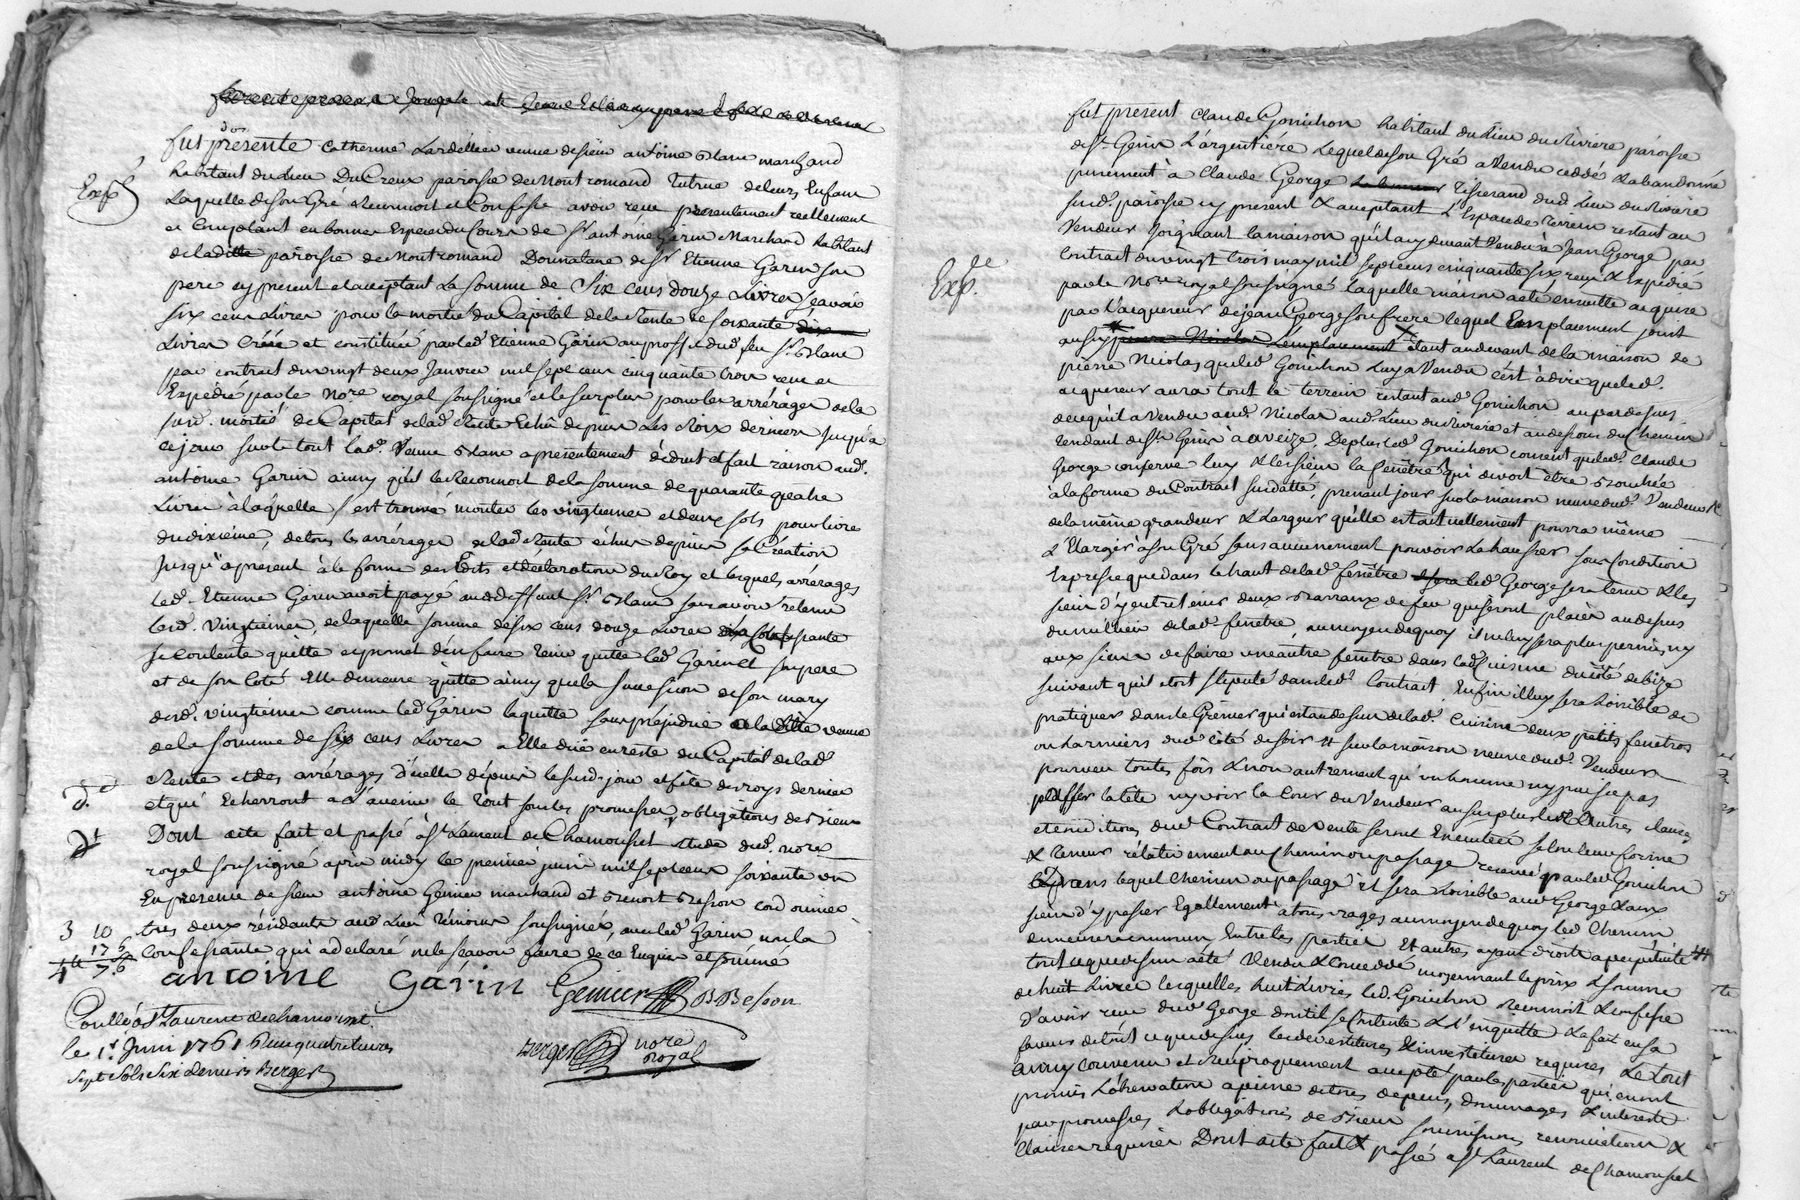 fut présente
don
Catherine Lardellier veuve de sieur antoine Blanc marchand
habitant du Lieu Du Creux paroisse de Montromand Tutrice de leurs Enfans
Expé
Laquelle de son Gré Reconnoit et Confesse avoir reçu présentement réellement
et Comptant en bonnes Especes du Cours de Sr antoine Garin Marchand habitant
de laditte paroisse de Montromand Donnataire de Sr Etienne Garin son
pere cy présent et acceptant La somme de Six cens douze Livres sçavoir
six cens Livres pour la moitié du Capital de la Rente de soixante
Livres Créée et constituée par led. Etienne Garin au proffit dud. feu Sr Blanc
par contrat du vingt deux Janvier mil sept cens cinquante trois reçu et
Expédié par le Nore royal soussigné et le surplus pour les arrérages de la
susd. moitié de Capital de lad. Rente Echûs depuis Les Roix derniers jusqu'à
ce jour sur le tout lad. Veuve Blanc a présentement déduit et fait raison aud.
antoine Garin ainsy qu'il le Reconnoit de la somme de quarante quatre
Livres à laquelle s'est trouvé monter les vingtiemes et deux sols pour livre
du dixiéme, de tous les arrérages de lad. Rente échus depuis sa Création
Jusqu'à présent à la forme des Edits et déclarations du Roy et lesquels arrérages
led. Etienne Garin avoit payé aud. deffunt Sr Blanc sans avoir retenu
lesd. vingtiemes, de laquelle somme de six cens douze Livres la Confessante
se contente quitte et promet d'en faire tenir quitte led. Garin et son pere
et de son Coté Elle demeure quitte ainsy que la succession de son mary
desd. vingtiemes comme led. Garin la quitte sans préjudice a laditte veuve
de la somme de six cens Livres a Elle düe en reste du Capital de lad.
Rente et des arrérages d'icelle depuis le susd. jour et fête des roys dernier
et qui Echerront a l'avenir le Tout sous les promesses, obligations de biens
Dont acte fait et passé à St Laurent de Chamousset Etude dud. nore
royal soussigné après midy le premier juin mil sept cens soixante un
En présence de sieur antoine Genier marchand et Benoit Besson cordonnier
tres deux résidants aud. Lieu témoins soussignés, avec led. Garin non la
Confessante, qui a declaré ne le sçavoir faire de ce Enquise et sommée
3 10
17 6
4tt 7.6
antoine Garin Genier B Besson
Conllé à St Laurent de chamousset
le 1r Juin 1761 Reçu quatre livres
sept Sols Six deniers Berger
Berger nore
Royal
fut présent Claude Gonichon habitant du Lieu du Rivière paroisse
de St Genis L'argentière Lequel de son Gré a Vendu ceddé & abandonné
purement à Claude George Tisserand dud. Lieu du Rivière
susd. paroisse cy présent & acceptant L'Espace de terrein restant au
Vendeur Joignant la maison qu'il a cy devant Vendu à Jean George par
Contrat du vingt trois may mil sept cens cinquante six reçu & Expédié
Expée
par le Nore royal soussigné laquelle maison a été ensuitte acquise
par l'acquereur de Jean George son frere lequel Emplacement joint
aussy étant au devant de la maison de
pierre Nicolas que led. Gonichon Luy a Vendu c'est à dire que led.
acquereur aura tout le terrein restant aud. Gonichon au par dessus
de ce qu'il a Vendu aud. Nicolas aud. Lieu du Rivière et au dessous du Chemin
tendant de St Genis à aveize, De plus led. Gonichon consent que led. Claude
George conserve luy & les siens la fenêtre qui devoit être bouchée
à la forme du Contrat susdatté, prenant jour sur la maison neuve dud. Vendeur &
de la même grandeur & Largeur qu'elle est actuellement pourra même
L'Elargir à son Gré sans aucunement pouvoir La hausser sous Condition
Expresse que dans le haut de lad. fenêtre led. George sera tenu & les
siens d'y entretenir deux barraux de fer qui seront placés au dessus
du milieu de lad. fenêtre, au moyen de quoy il ne luy sera plus permis, ny
aux siens de faire une autre fenêtre dans lad. Cuisine du côté de bize
suivant qu'il etoit stipulé dans led. Contrat Enfin il luy sera Loisible de
pratiquer dans le Grenier qui est au dessus de lad. Cuisine deux petits fenêtres
ou larmiers dud. côté de soir & sur la maison neuve dud. Vendeur
pourveu toutes fois & non autrement qu'un homme n'y puisse pas
passer la tête ny voir la Cour du Vendeur au surplus les Autres clauses
et conditions dud. Contrat de Vente seront Executées selon leur forme
& teneur relativement au Chemin ou passage reservé par led. Gonichon
dans lequel Chemin ou passage il sera Loisible aud. George & aux
siens d'y passer Egallement à tous usages au moyen de quoy led. Chemin
demeurera commun Entre les parties Et autres ayant droits à perpétuité
tout ce que dessus a été Vendu & conceddé moyennant le prix & somme
de huit Livres lesquelles huit Livres led. Gonichon reconnoit & confesse
d'avoir reçu dud. George dont il se Contente & L'en quitte La fait en sa
faveur de tout ce que dessus les devestitures & investitures requises Le Tout
ainsy convenu et reciproquement accepté par les parties qui en ont
promis L'observation à peine de tous depens, dommages & interests
par promesses, & obligations de biens soumissions, renonciations &
Clauses requises Dont acte fait & passé a St Laurent de Chamousset